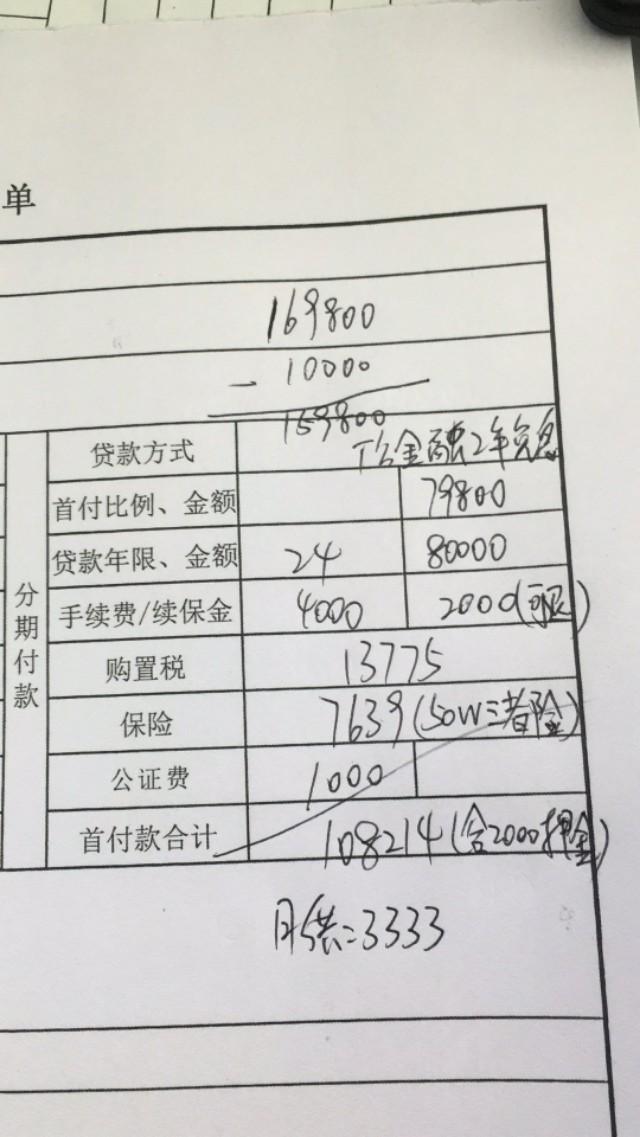 单
169800
- 10000
159800
分期付款
贷款方式 金融2年免息
首付比例、金额 79800
贷款年限、金额 24 80000
手续费/续保金 4000 2000(可退)
购置税 13775
保险 7639(50W三者险)
公证费 1000
首付款合计 108214(含2000押金)
月供=3333